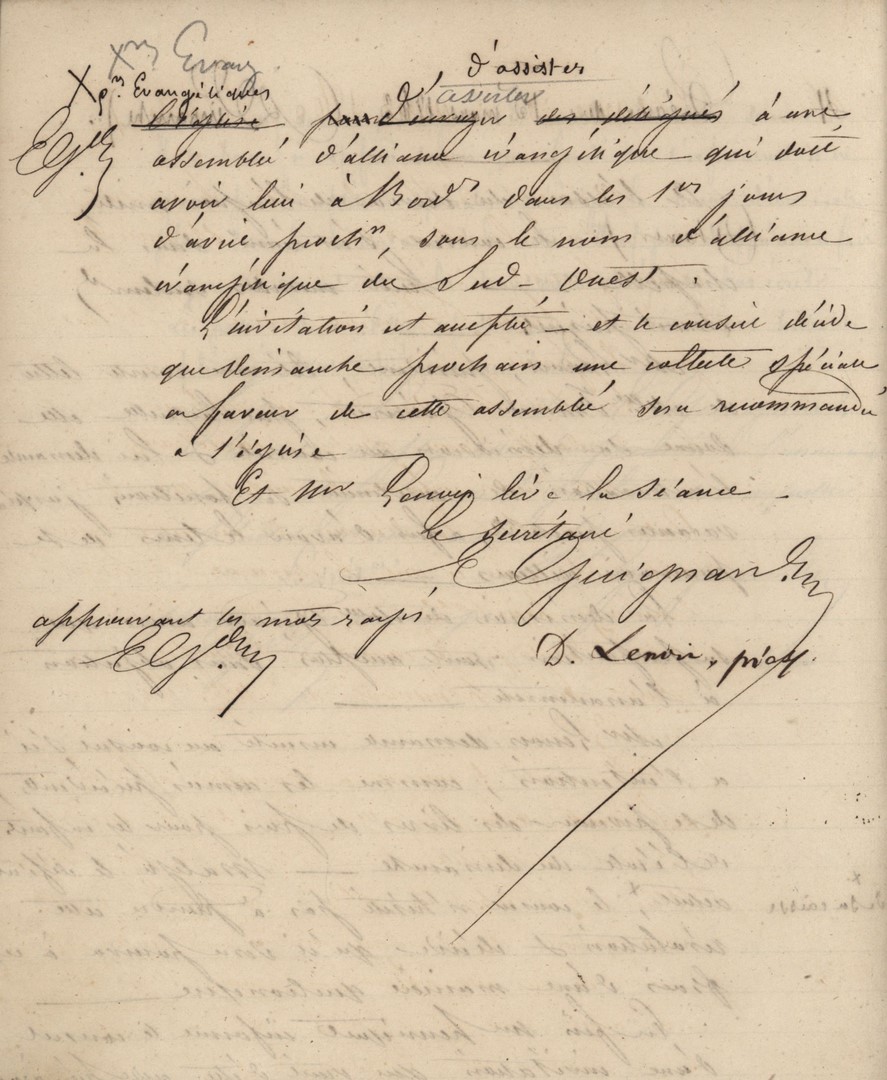 d'assister
X prs Evangéliques
assister
l'église pour d'envoyer des délégués à une
EGd
assemblé d'alliance évangélique qui doit
avoir lieu à Bordx dans les 1ers jours
d'avril prochn, sous le nom d'alliance
évangélique du Sud-Ouest.
L'invitation est accepté – et le conseil décide
que Dimanche prochain une collecte spéciale
en faveur de cette assemblé sera recommandé
a l'église
Et Mr Lenoir lève la séance –
le secrétaire
E Guignard
approuvant les mots rayés
EGd
D. Lenoir, pt